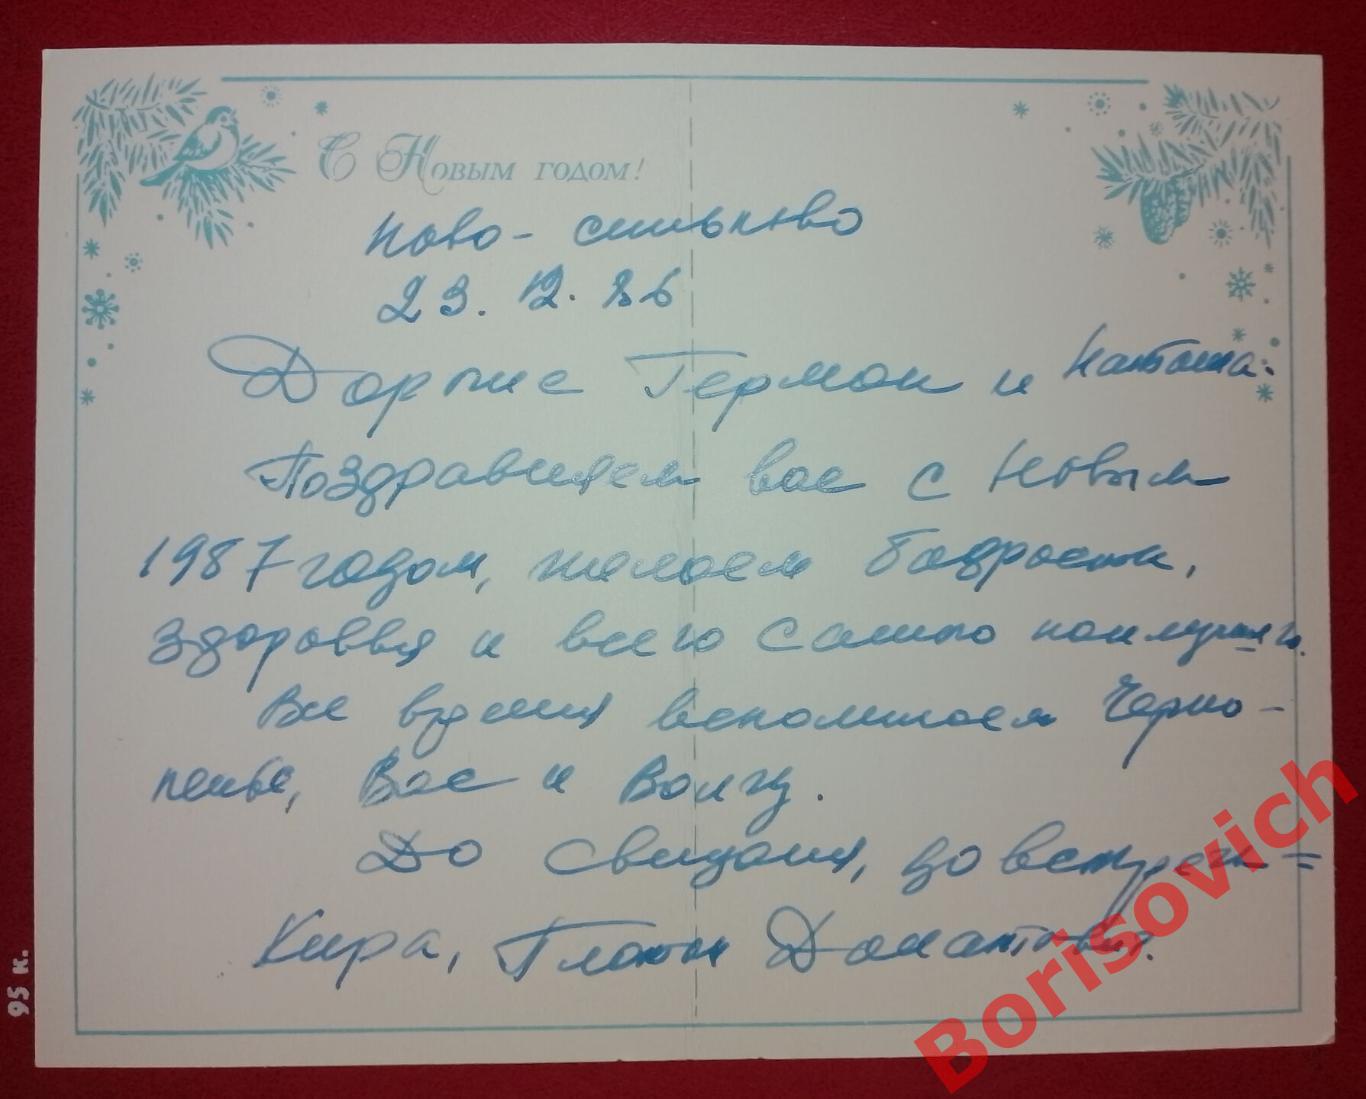 С Новым годом!
Ново-сильково
23.12.86
Дорогие Герман и Наташа.
Поздравляем вас с Новым
1987 годом, желаем бодрости,
здоровья и всего самого наилучшего.
Все время вспоминаем Черно-
пенье, Вас и Волгу.
До свидания, до встречи =
Кира, Платон Донатович.
95 к.
Borisovich